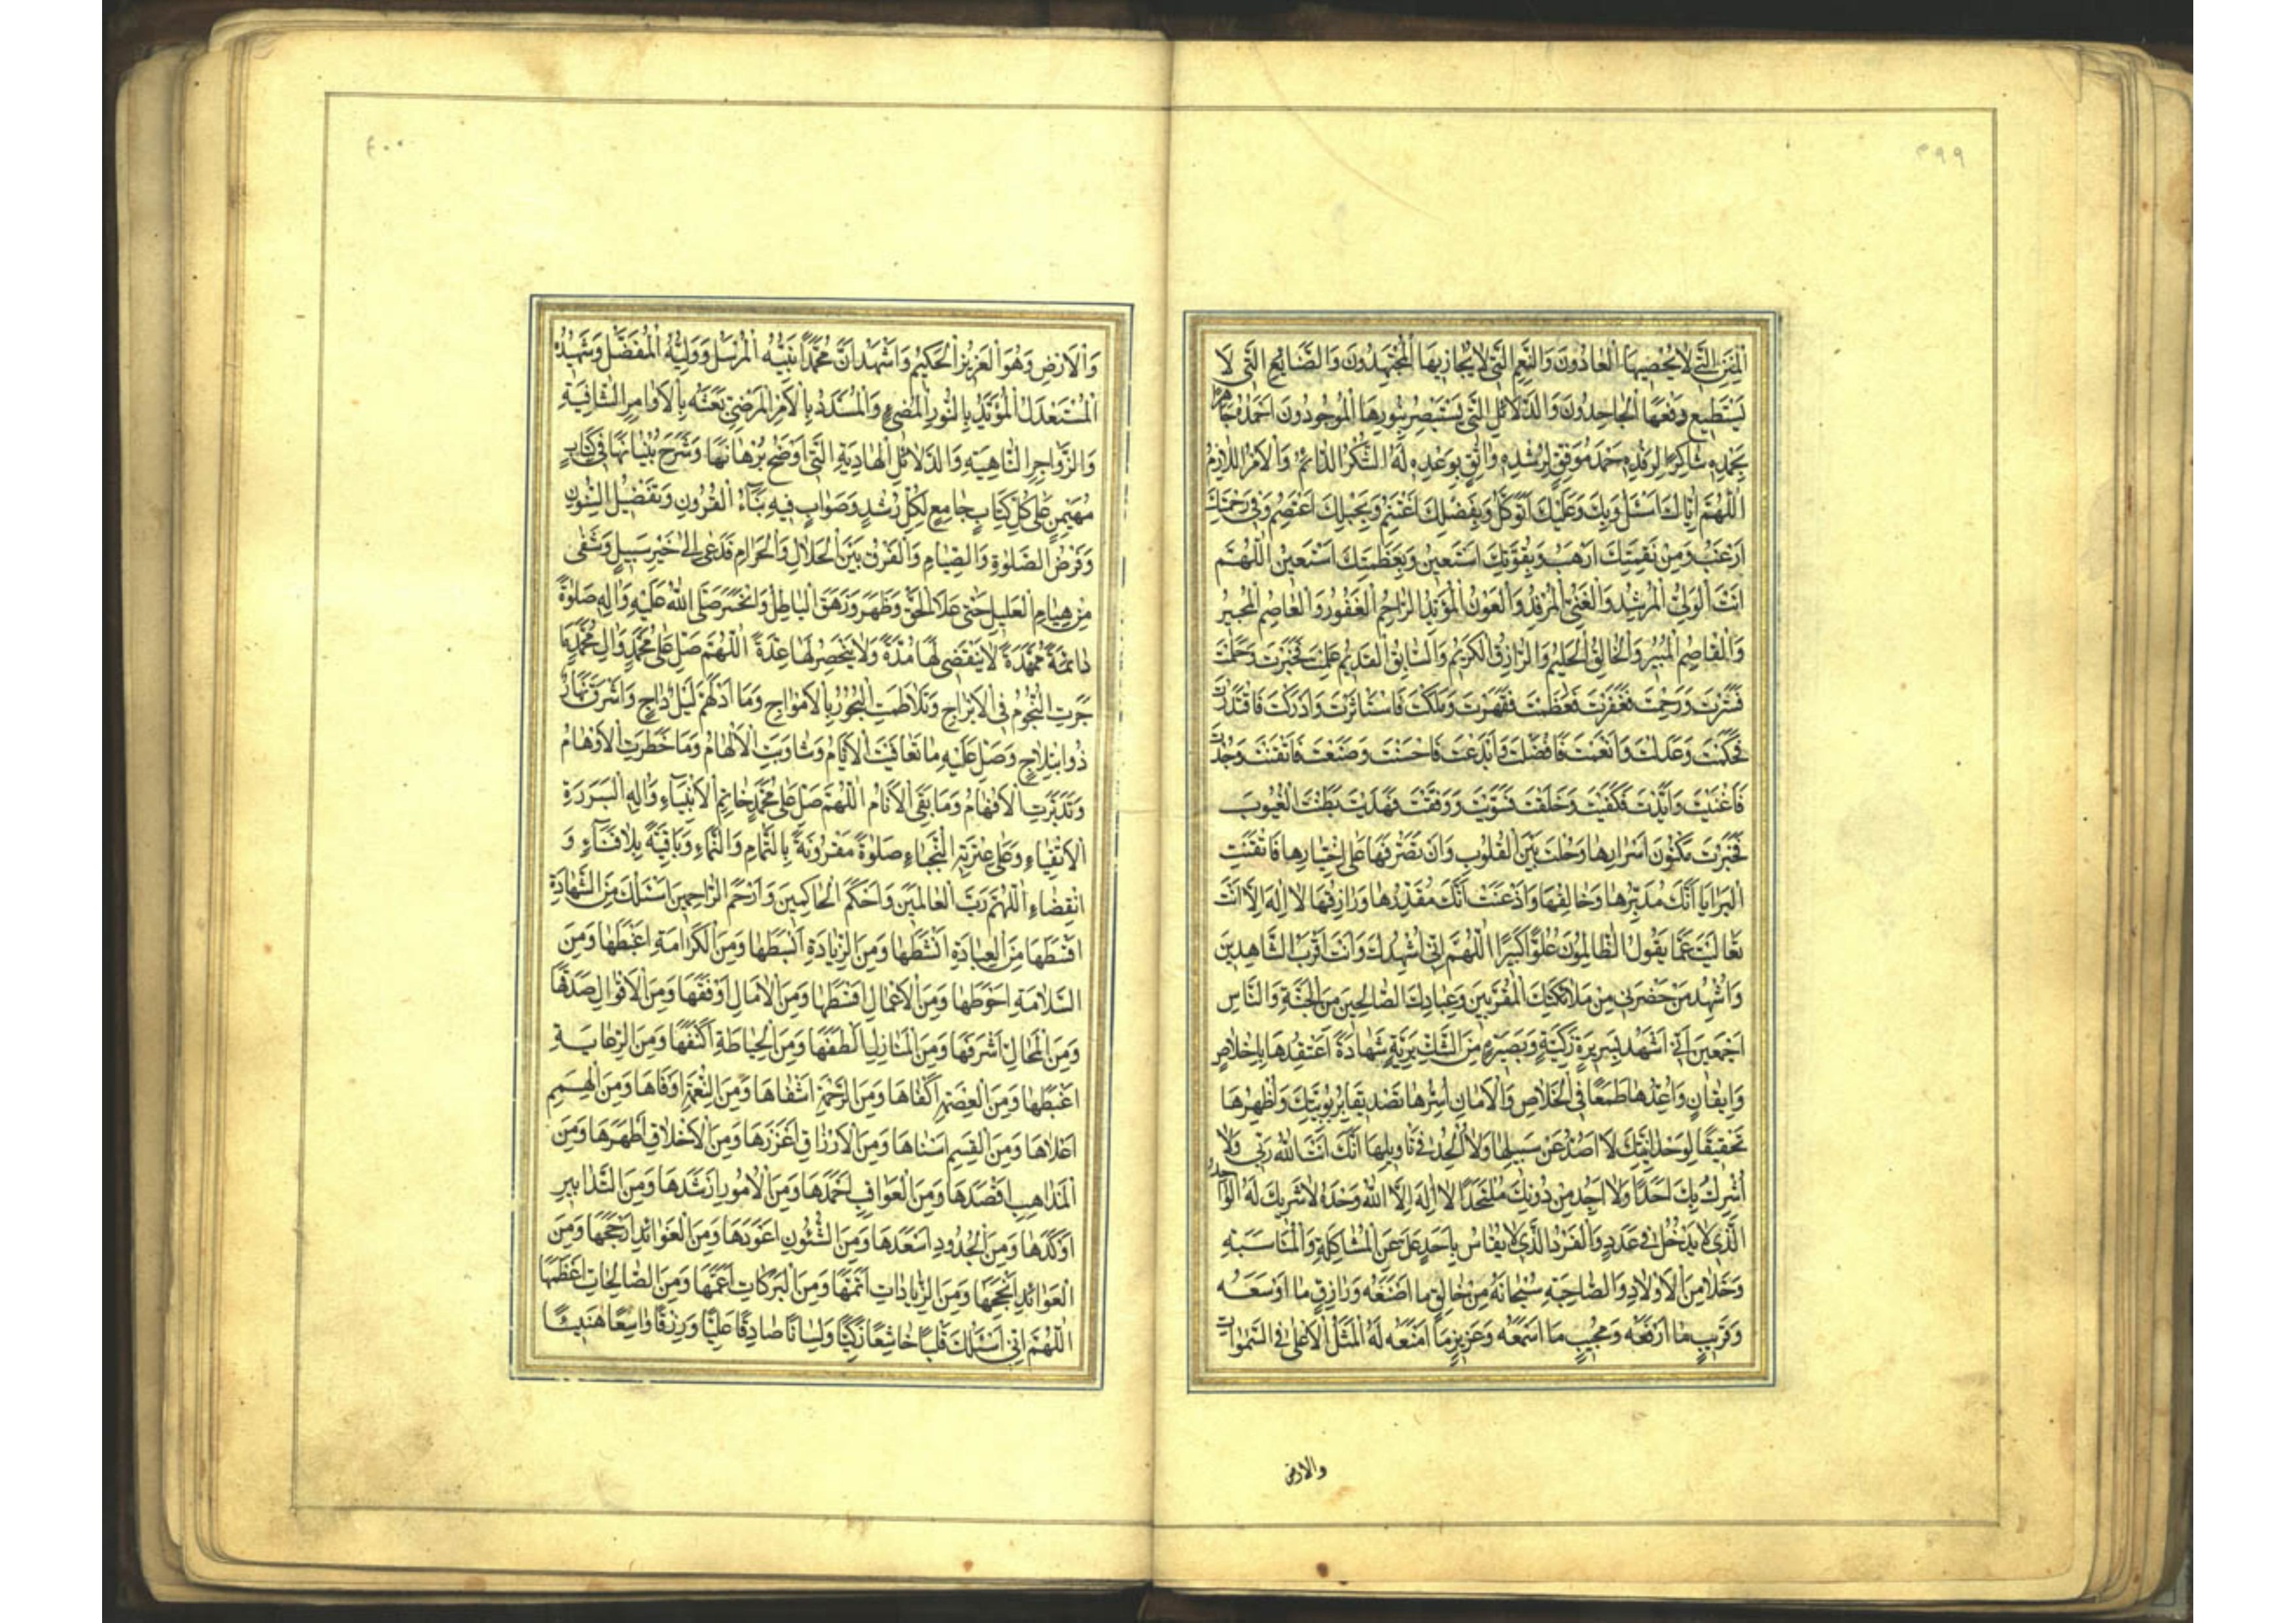 ٣٩٩
الْمِنَنِ الَّتِي لَا يُحْصِيهَا الْعَادُّونَ وَالنِّعَمِ الَّتِي لَا يُجَازِيهَا الْمُجْتَهِدُونَ وَالصَّنَايِعِ الَّتِي لَا
يَسْتَطِيعُ دَفْعَهَا الْجَاحِدُونَ وَالدَّلَائِلِ الَّتِي يَسْتَبْصِرُ بِنُورِهَا الْمَوْجُودُونَ اَحْمَدُهُ جَاهِرًا
بِحَمْدِهِ شَاكِرًا لِرِفْدِهِ حَمْدَ مُوَفَّقٍ لِرُشْدِهِ وَاثِقٍ بِوَعْدِهِ لَهُ الشُّكْرُ الدَّائِمُ وَالْاَمْرُ اللَّازِمُ
اَللّٰهُمَّ اِيَّاكَ اَسْئَلُ وَبِكَ وَعَلَيْكَ اَتَوَكَّلُ وَبِفَضْلِكَ اَغْتَنِمُ وَبِحَبْلِكَ اَعْتَصِمُ وَفِي رَحْمَتِكَ
اَرْغَبُ وَمِنْ نَقِمَتِكَ اَرْهَبُ وَبِقُوَّتِكَ اَسْتَعِينُ وَبِعَظَمَتِكَ اَسْتَعِينُ اَللّٰهُمَّ
اَنْتَ الْوَلِيُّ الْمُرْشِدُ وَالْغَنِيُّ الْمُرْفِدُ وَالْعَوْنُ الْمُؤَيِّدُ الرَّاحِمُ الْغَفُورُ وَالْعَاصِمُ الْمُجِيرُ
وَالْقَاصِمُ الْمُبِيرُ وَالْخَالِقُ الْحَلِيمُ وَالرَّازِقُ الْكَرِيمُ وَالسَّابِقُ الْقَدِيمُ عَلِمْتَ فَخَبَرْتَ وَحَلُمْتَ
فَسَتَرْتَ وَرَحِمْتَ فَغَفَرْتَ فَعَظُمْتَ فَقَهَرْتَ وَمَلَكْتَ فَاسْتَاْثَرْتَ وَاَدْرَكْتَ فَاقْتَدَرْتَ
فَحَكَمْتَ وَعَدَلْتَ وَاَنْعَمْتَ فَاَفْضَلْتَ وَاَبْدَعْتَ فَاَحْسَنْتَ وَصَنَعْتَ فَاَتْقَنْتَ وَجُدْتَ
فَاَغْنَيْتَ وَاَيَّدْتَ فَكَفَيْتَ وَخَلَقْتَ فَسَوَّيْتَ وَوَفَّقْتَ فَهَدَيْتَ بَطَنْتَ الْغُيُوبَ
فَخَبَرْتَ مَكْنُونَ اَسْرَارِهَا وَحُلْتَ بَيْنَ الْقُلُوبِ وَاَنْ تَصَرُّفِهَا عَلَى اخْتِيَارِهَا فَاَيْقَنَتِ
الْبَرَايَا اَنَّكَ مُدَبِّرُهَا وَخَالِقُهَا وَاَذْعَنَتْ اَنَّكَ مُقَدِّرُهَا وَرَازِقُهَا لَا اِلٰهَ اِلَّا اَنْتَ
تَعَالَيْتَ عَمَّا يَقُولُ الظَّالِمُونَ عُلُوًّا كَبِيرًا اَللّٰهُمَّ اِنِّي اُشْهِدُكَ وَاَنْتَ اَقْرَبُ الشَّاهِدِينَ
وَاُشْهِدُ مَنْ حَضَرَنِي مِنْ مَلَائِكَتِكَ الْمُقَرَّبِينَ وَعِبَادِكَ الصَّالِحِينَ مِنَ الْجِنَّةِ وَالنَّاسِ
اَجْمَعِينَ اَنِّي اَشْهَدُ بِسَرِيرَةٍ زَكِيَّةٍ وَبَصِيرَةٍ مِنَ الشَّكِّ بَرِيَّةٍ شَهَادَةً اَعْتَقِدُهَا بِاِخْلَاصٍ
وَاِيقَانٍ وَاُعِدُّهَا طَمَعًا فِي الْخَلَاصِ وَالْاَمَانِ اُسِرُّهَا تَصْدِيقًا بِرُبُوبِيَّتِكَ وَاُظْهِرُهَا
تَحْقِيقًا لِوَحْدَانِيَّتِكَ لَا اَصُدُّ عَنْ سَبِيلِهَا وَلَا اُلْحِدُ فِي تَاْوِيلِهَا اَنَّكَ اَنْتَ اللهُ رَبِّي وَلَا
اُشْرِكُ بِكَ اَحَدًا وَلَا اَجِدُ مِنْ دُونِكَ مُلْتَحَدًا لَا اِلٰهَ اِلَّا اللهُ وَحْدَهُ لَا شَرِيكَ لَهُ الْوَاحِدُ
الَّذِي لَا يَدْخُلُ فِي عَدَدٍ وَالْفَرْدُ الَّذِي لَا يُقَاسُ بِاَحَدٍ عَلَا عَنِ الْمُشَاكَلَةِ وَالْمُنَاسَبَةِ
وَخَلَا مِنَ الْاَوْلَادِ وَالصَّاحِبَةِ سُبْحَانَهُ مِنْ خَالِقٍ مَا اَصْنَعَهُ وَرَازِقٍ مَا اَوْسَعَهُ
وَقَرِيبٍ مَا اَرْفَعَهُ وَمُجِيبٍ مَا اَسْمَعَهُ وَعَزِيزٍ مَا اَمْنَعَهُ لَهُ الْمَثَلُ الْاَعْلٰى فِي السَّمٰوَاتِ
والارض
٤٠٠
وَالْاَرْضِ وَهُوَ الْعَزِيزُ الْحَكِيمُ وَاَشْهَدُ اَنَّ مُحَمَّدًا نَبِيُّهُ الْمُرْسَلُ وَوَلِيُّهُ الْمُفَضَّلُ وَشَهِيدُهُ
الْمُسْتَعْدَلُ الْمُؤَيَّدُ بِالنُّورِ الْمُضِيءِ وَالْمُسَدَّدُ بِالْاَمْرِ الْمَرْضِيِّ بَعَثَهُ بِالْاَوَامِرِ الشَّافِيَةِ
وَالزَّوَاجِرِ النَّاهِيَةِ وَالدَّلَائِلِ الْهَادِيَةِ الَّتِي اَوْضَحَ بُرْهَانَهَا وَشَرَحَ بُنْيَانَهَا فِي كِتَابٍ
مُهَيْمِنٍ عَلَى كُلِّ كِتَابٍ جَامِعٍ لِكُلِّ رُشْدٍ وَصَوَابٍ فِيهِ نَبَاُ الْقُرُونِ وَتَفْضِيلُ الشُّئُونِ
وَفَرْضُ الصَّلٰوةِ وَالصِّيَامِ وَالْفَرْقُ بَيْنَ الْحَلَالِ وَالْحَرَامِ فَدَعَى اِلَى خَيْرِ سَبِيلٍ وَشَفَى
مِنْ هُيَامِ الْغَلِيلِ حَتَّى عَلَا الْحَقُّ وَظَهَرَ وَزَهَقَ الْبَاطِلُ وَانْحَسَرَ صَلَّى اللهُ عَلَيْهِ وَآلِهِ صَلٰوةً
دَائِمَةً مُمَهَّدَةً لَا يَنْقَضِي لَهَا مُدَّةٌ وَلَا يَنْحَصِرُ لَهَا عِدَّةٌ اَللّٰهُمَّ صَلِّ عَلَى مُحَمَّدٍ وَآلِ مُحَمَّدٍ مَا
جَرَتِ النُّجُومُ فِي الْاَبْرَاجِ وَتَلَاطَمَتِ الْبُحُورُ بِالْاَمْوَاجِ وَمَا ادْلَهَمَّ لَيْلٌ دَاجٍ وَاَشْرَقَ نَهَارٌ
ذُو ابْتِلَاجٍ وَصَلِّ عَلَيْهِ مَا تَعَاقَبَتِ الْاَيَّامُ وَتَنَاوَبَتِ الْاَلْهَامُ وَمَا خَطَرَتِ الْاَوْهَامُ
وَتَدَبَّرَتِ الْاَفْهَامُ وَمَا بَقِيَ الْاَنَامُ اَللّٰهُمَّ صَلِّ عَلَى مُحَمَّدٍ خَاتَمِ الْاَنْبِيَاءِ وَآلِهِ الْبَرَرَةِ
الْاَتْقِيَاءِ وَعَلَى عِتْرَتِهِ النُّجَبَاءِ صَلٰوةً مَقْرُونَةً بِالتَّمَامِ وَالنَّمَاءِ وَبَاقِيَةً بِلَا فَنَاءٍ وَ
انْقِضَاءٍ اَللّٰهُمَّ رَبَّ الْعَالَمِينَ وَاَحْكَمَ الْحَاكِمِينَ وَاَرْحَمَ الرَّاحِمِينَ اَسْئَلُكَ مِنَ الشَّهَادَةِ
اَقْسَطَهَا مِنَ الْعِبَادَةِ اَنْشَطَهَا وَمِنَ الزِّيَادَةِ اَبْسَطَهَا وَمِنَ الْكَرَامَةِ اَغْبَطَهَا وَمِنَ
السَّلَامَةِ اَحْوَطَهَا وَمِنَ الْاَعْمَالِ اَقْسَطَهَا وَمِنَ الْاٰمَالِ اَوْفَقَهَا وَمِنَ الْاَقْوَالِ اَصْدَقَهَا
وَمِنَ الْمَحَالِّ اَشْرَفَهَا وَمِنَ الْمَنَازِلِ اَلْطَفَهَا وَمِنَ الْحِيَاطَةِ اَكْنَفَهَا وَمِنَ الرِّعَايَةِ
اَغْبَطَهَا وَمِنَ الْعِصْمَةِ اَكْفَاهَا وَمِنَ الرَّحْمَةِ اَشْفَاهَا وَمِنَ النِّعْمَةِ اَوْفَاهَا وَمِنَ الْهِمَمِ
اَعْلَاهَا وَمِنَ الْقِسَمِ اَسْنَاهَا وَمِنَ الْاَرْزَاقِ اَغْزَرَهَا وَمِنَ الْاَخْلَاقِ اَطْهَرَهَا وَمِنَ
الْمَذَاهِبِ اَقْصَدَهَا وَمِنَ الْعَوَاقِبِ اَحْمَدَهَا وَمِنَ الْاُمُورِ اَرْشَدَهَا وَمِنَ التَّدَابِيرِ
اَوْكَدَهَا وَمِنَ الْجُدُودِ اَسْعَدَهَا وَمِنَ الشُّئُونِ اَعْوَدَهَا وَمِنَ الْفَوَائِدِ اَرْجَحَهَا وَمِنَ
الْعَوَائِدِ اَنْجَحَهَا وَمِنَ الزِّيَادَاتِ اَتَمَّهَا وَمِنَ الْبَرَكَاتِ اَعَمَّهَا وَمِنَ الصَّالِحَاتِ اَعْظَمَهَا
اَللّٰهُمَّ اِنِّي اَسْئَلُكَ قَلْبًا خَاشِعًا زَكِيًّا وَلِسَانًا صَادِقًا عَلِيًّا وَرِزْقًا وَاسِعًا هَنِيئًا